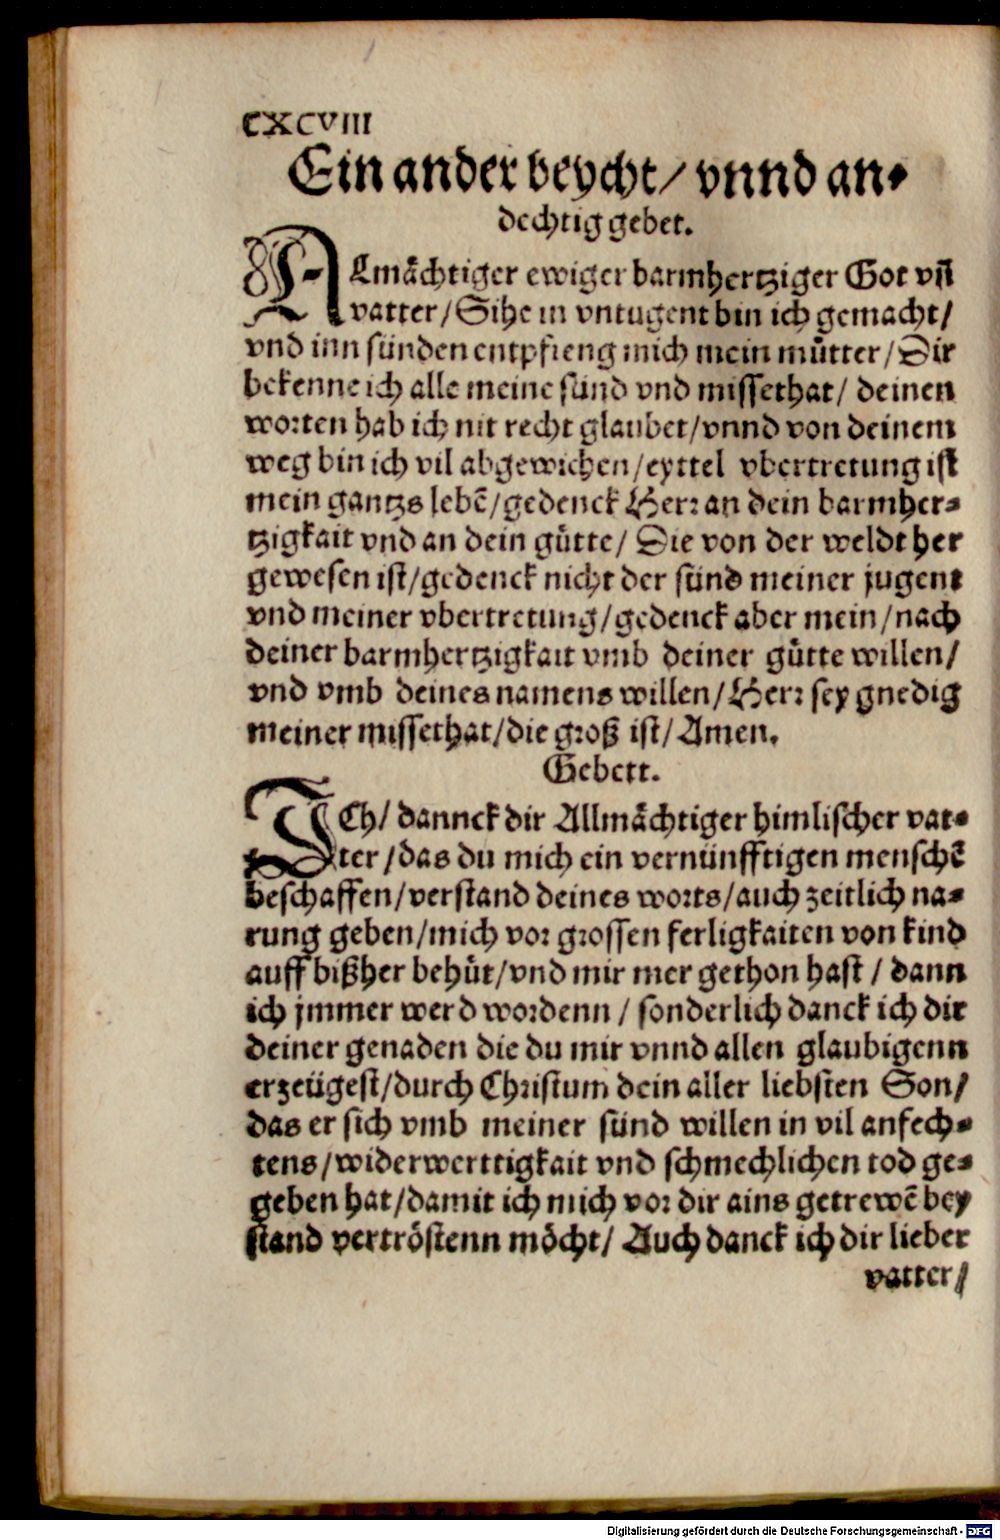 CXCVIII
Ein ander beycht/ vnnd an⸗
dechtig gebet.
ALmaͤchtiger ewiger barmhertziger Got vñ
vatter/Sihe in vntugent bin ich gemacht/
vnd inn sünden entpfieng mich mein muͦtter/Dir
bekenne ich alle meine sünd vnd missethat/ deinen
worten hab ich nit recht glaubet/vnnd von deinem
weg bin ich vil abgewichen/eyttel vbertretung ist
mein gantzs lebē/gedenck Herr an dein barmher⸗
tzigkait vnd an dein guͤtte/ Die von der weldt her
gewesen ist/gedenck nicht der sünd meiner jugent
vnd meiner vbertretung/gedenck aber mein/nach
deiner barmhertzigkait vmb deiner guͤtte willen/
vnd vmb deines namens willen/Herr sey gnedig
meiner missethat/die groß ist/Amen.
Gebett.
ICh/ dannck dir Allmaͤchtiger himlischer vat⸗
ter/das du mich ein vernünfftigen menschē
beschaffen/verstand deines worts/auch zeitlich na⸗
rung geben/mich vor grossen ferligkaiten von kind
auff bißher behuͤt/vnd mir mer gethon hast / dann
ich jmmer werd wordenn / sonderlich danck ich dir
deiner genaden die du mir vnnd allen glaubigenn
erzeügest/durch Christum dein aller liebsten Son/
das er sich vmb meiner sünd willen in vil anfech⸗
tens/widerwerttigkait vnd schmechlichen tod ge⸗
geben hat/damit ich mich vor dir ains getrewē bey
stand vertroͤstenn moͤcht/ Auch danck ich dir lieber
vatter/
Digitalisierung gefördert durch die Deutsche Forschungsgemeinschaft - DFG